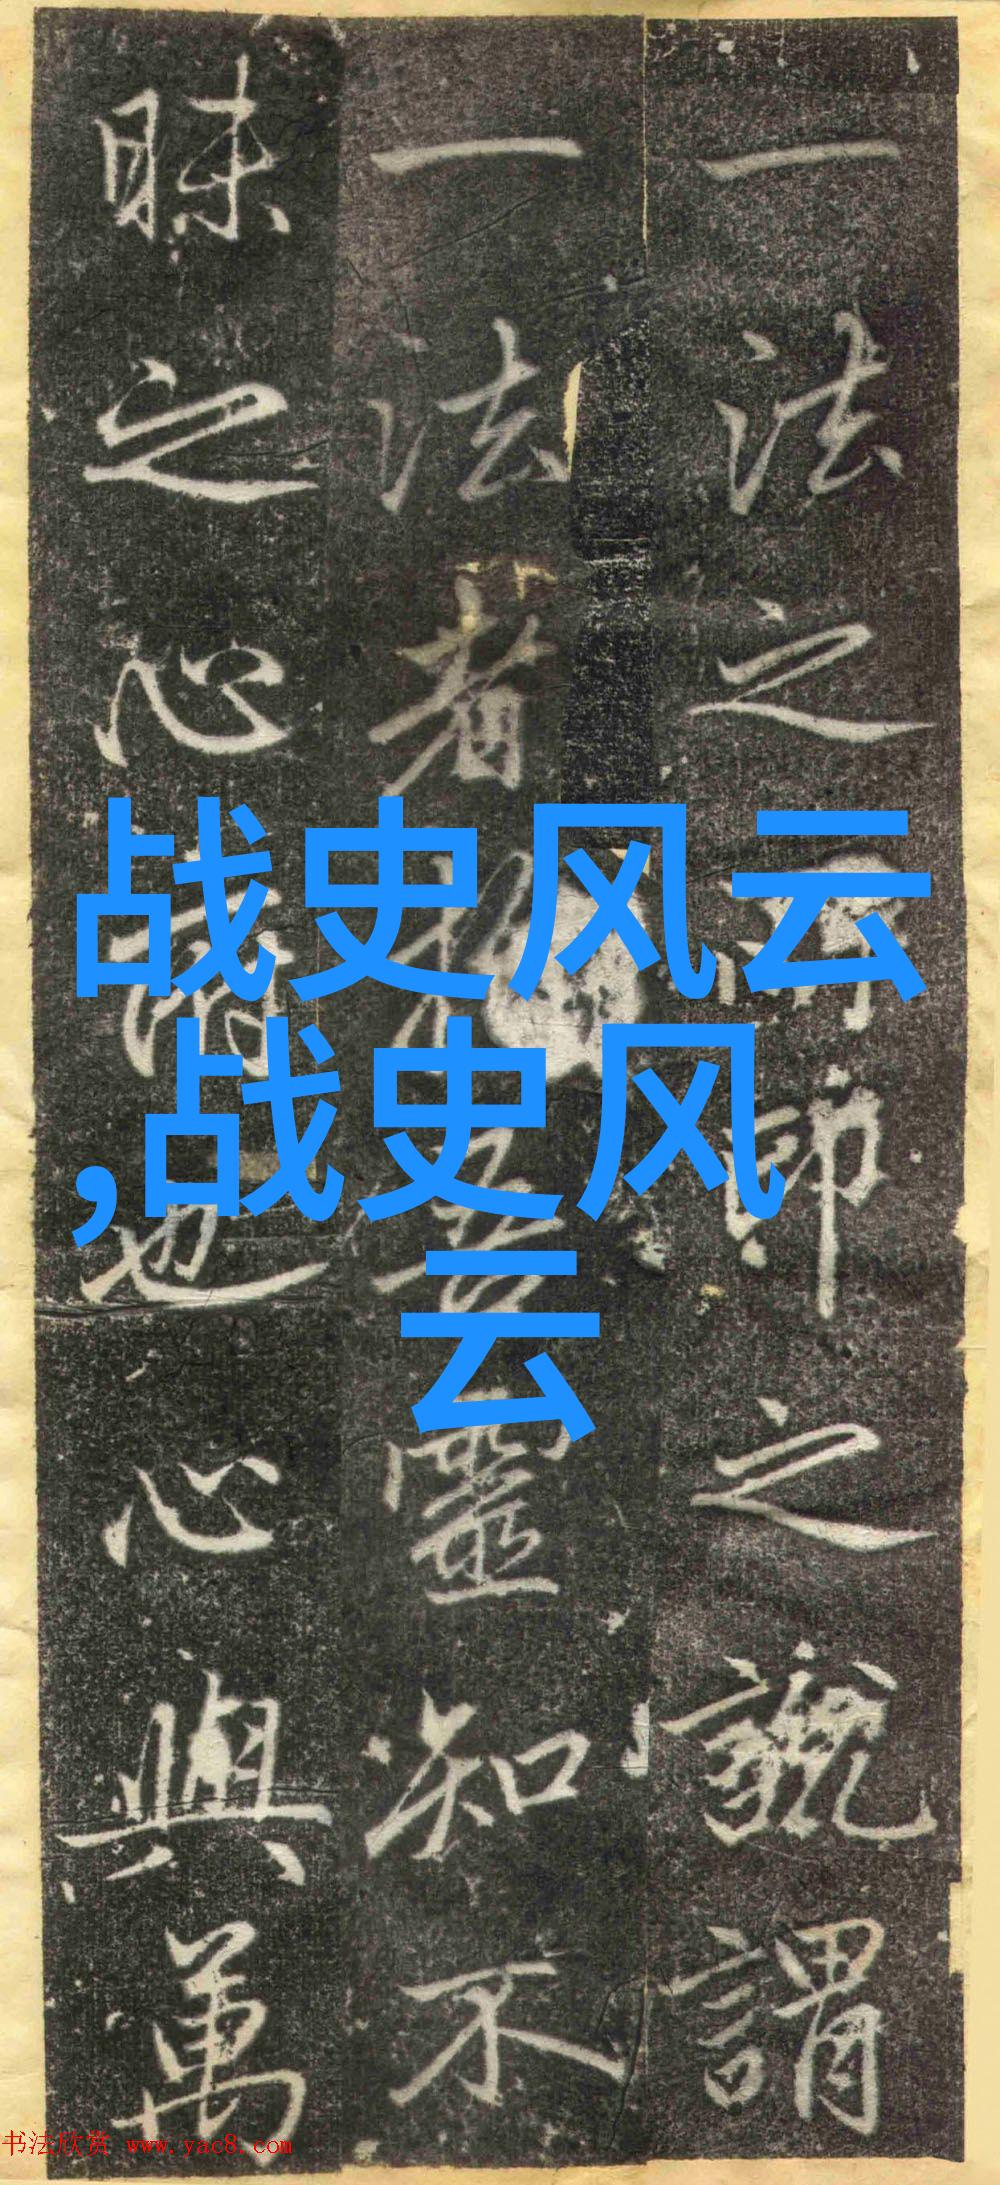 一法之印之號謂
一法者靈知不
昧之心也心與萬
战史风云
,战史风
云
书法欣赏 www.yac8.com